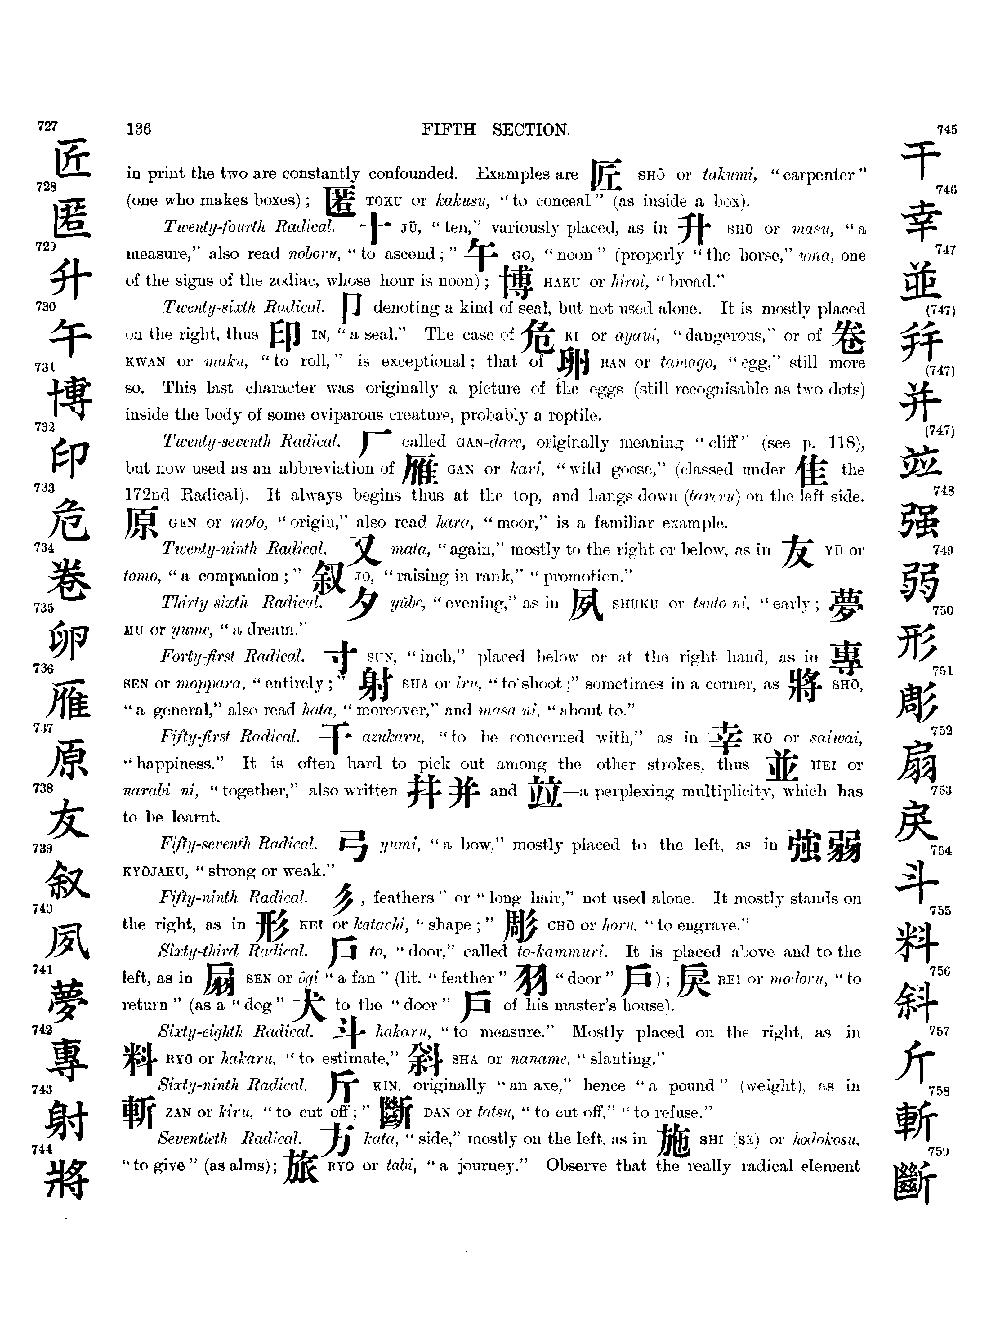 727
匠
728
匿
729
升
730
午
731
博
732
印
733
危
734
卷
735
卵
736
雁
737
原
738
友
739
叙
740
夙
741
夢
742
專
743
射
744
將
136 FIFTH SECTION.
in print the two are constantly confounded. Examples are 匠 SHŌ or takumi, “carpenter”
(one who makes boxes); 匿 TOKU or kakusu, “to conceal” (as inside a box).
Twenty-fourth Radical. 十 JŪ, “ten,” variously placed, as in 升 SHŌ or masu, “a
measure,” also read noboru, “to ascend;” 午 GO, “noon” (properly “the horse,” uma, one
of the signs of the zodiac, whose hour is noon); 博 HAKU or hiroi, “broad.”
Twenty-sixth Radical. 卩 denoting a kind of seal, but not used alone. It is mostly placed
on the right, thus 印 IN, “a seal.” The case of 危 KI or ayaui, “dangerous,” or of 卷
KWAN or maku, “to roll,” is exceptional; that of 卵 RAN or tamago, “egg,” still more
so. This last character was originally a picture of the eggs (still recognisable as two dots)
inside the body of some oviparous creature, probably a reptile.
Twenty-seventh Radical. 厂 called GAN-dare, originally meaning “cliff” (see p. 118),
but now used as an abbreviation of 雁 GAN or kari, “wild goose,” (classed under 隹 the
172nd Radical). It always begins thus at the top, and hangs down (tareru) on the left side.
原 GEN or moto, “origin,” also read hara, “moor,” is a familiar example.
Twenty-ninth Radical. 又 mata, “again,” mostly to the right or below, as in 友 YŪ or
tomo, “a companion;” 叙 JO, “raising in rank,” “promotion.”
Thirty sixth Radical. 夕 yūbe, “evening,” as in 夙 SHUKU or tsuto ni, “early; 夢
MU or yume, “a dream.”
Forty-first Radical. 寸 SUN, “inch,” placed below or at the right hand, as in 專
SEN or moppara, “entirely;” 射 SHA or iru, “to shoot;” sometimes in a corner, as 將 SHŌ,
“a general,” also read hata, “moreover,” and masa ni, “about to.”
Fifty-first Radical. 干 azukaru, “to be concerned with,” as in 幸 KŌ or saiwai,
“happiness.” It is often hard to pick out among the other strokes, thus 並 HEI or
narabi ni, “together,” also written 幷 并 and 竝—a perplexing multiplicity, which has
to be learnt.
Fifty-seventh Radical. 弓 yumi, “a bow,” mostly placed to the left, as in 強 弱
KYŌJAKU, “strong or weak.”
Fifty-ninth Radical. 彡, feathers” or “long hair,” not used alone. It mostly stands on
the right, as in 形 KEI or katachi, “shape;” 彫 CHŌ or horu, “to engrave.”
Sixty-third Radical. 戶 to, “door,” called to-kammuri. It is placed above and to the
left, as in 扇 SEN or ōgi “a fan” (lit. “feather” 羽 “door” 戶); 戾 REI or modoru, “to
return” (as a “dog” 犬 to the “door” 戶 of his master's house).
Sixty-eighth Radical. 斗 hakaru, “to measure.” Mostly placed on the right, as in
料 RYŌ or hakaru, “to estimate,” 斜 SHA or naname, “slanting.”
Sixty-ninth Radical. 斤 KIN, originally “an axe,” hence “a pound” (weight), as in
斬 ZAN or kiru, “to cut off;” 斷 DAN or tatsu, “to cut off,” “to refuse.”
Seventieth Radical. 方 kata, “side,” mostly on the left, as in 施 SHI (SE) or hodokosu,
“to give” (as alms); 旅 RYO or tabi, “a journey.” Observe that the really radical element
745
干
746
幸
747
並
(747)
幷
(747)
并
(747)
竝
748
强
749
弱
750
形
751
彫
752
扇
753
戾
754
斗
755
料
756
斜
757
斤
758
斬
759
斷